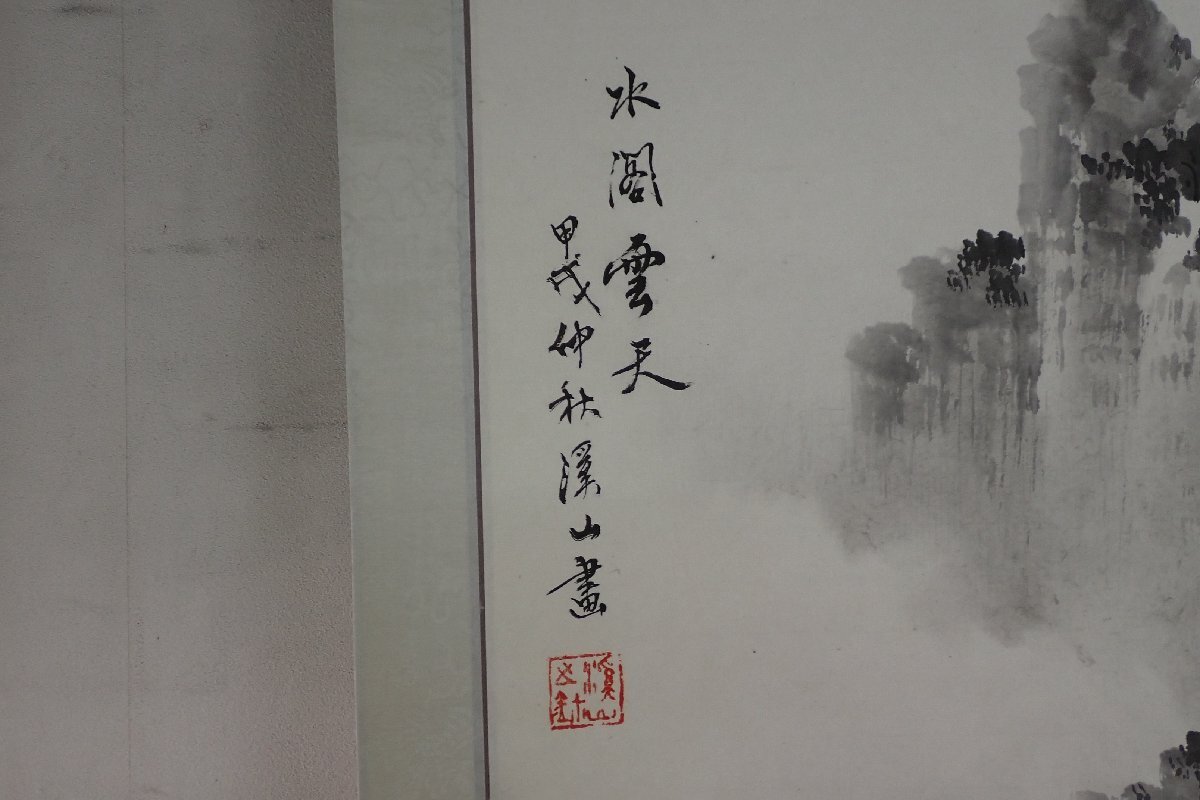 水閣雲天
甲戌仲秋溪山畫